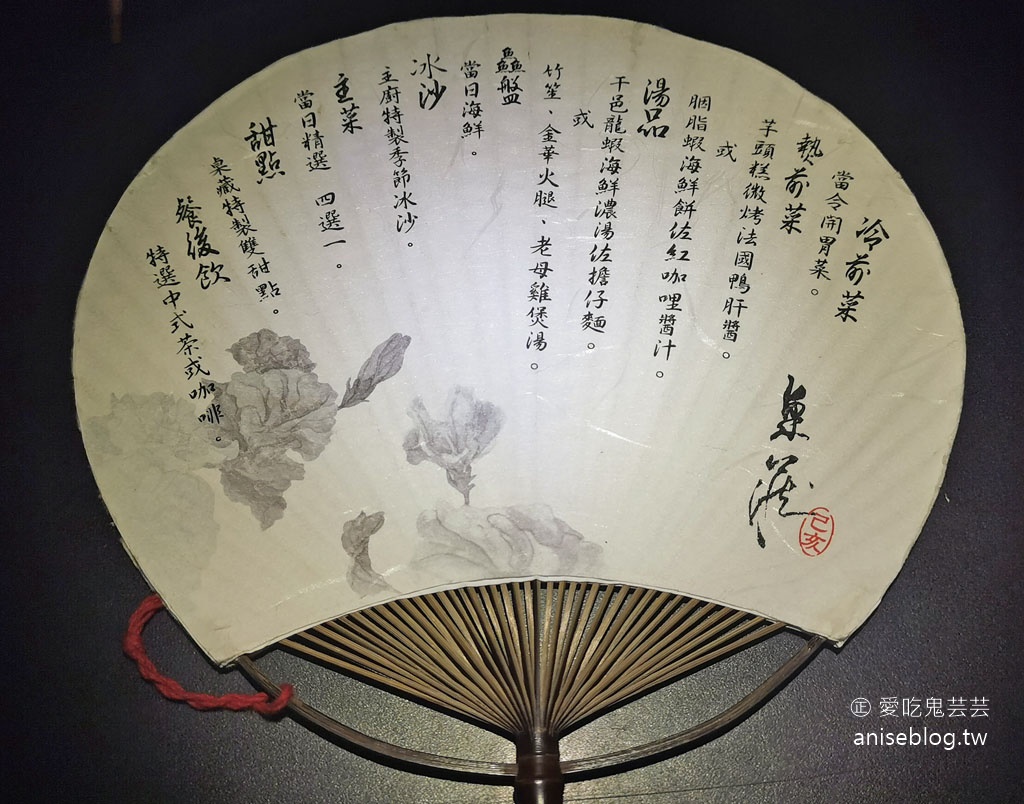 冷前菜
當令開胃菜。
熱前菜
芋頭糕微烤法國鴨肝醬。
或
胭脂蝦海鮮餅佐紅咖哩醬汁。
湯品
干邑龍蝦海鮮濃湯佐擔仔麵。
或
竹笙、金華火腿、老母雞煲湯。
鱻盤
當日海鮮。
冰沙
主廚特製季節冰沙。
主菜
當日精選 四選一。
甜點
臬藏特製雙甜點。
餐後飲
特選中式茶或咖啡。
己亥
㊣ 愛吃鬼芸芸
aniseblog.tw